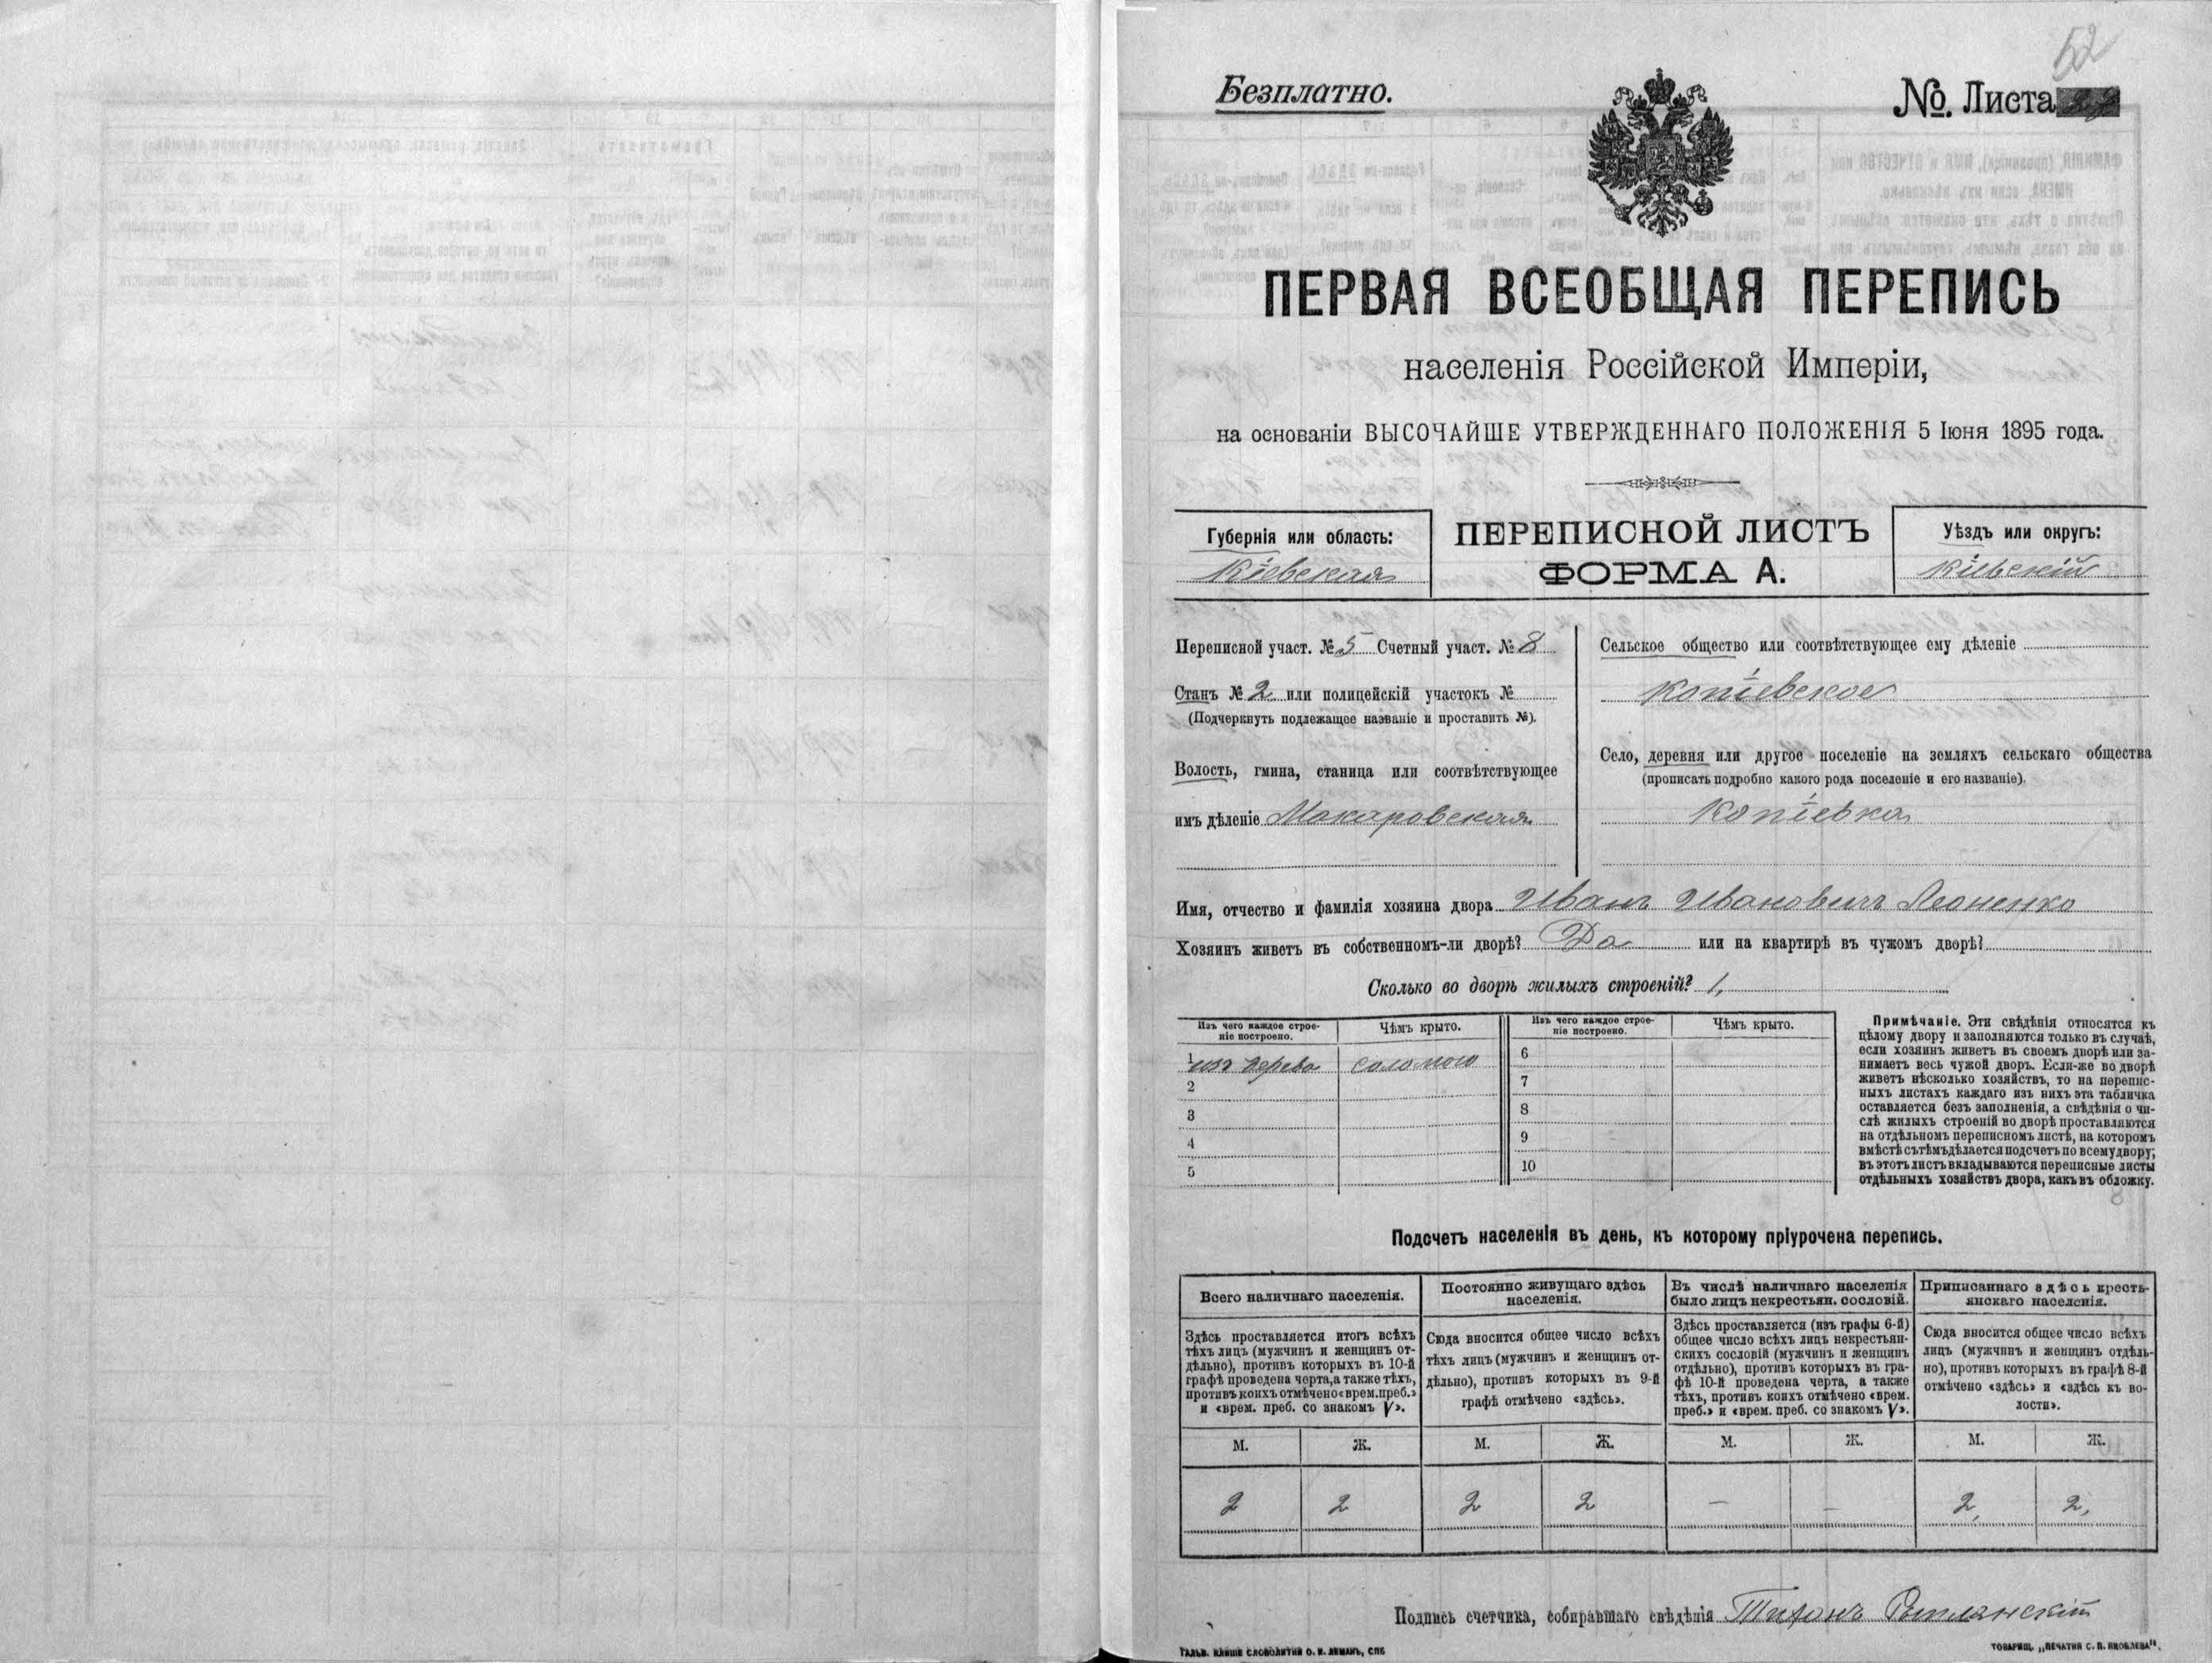 52
Безплатно.
№. Листа
ПЕРВАЯ ВСЕОБЩАЯ ПЕРЕПИСЬ
населенія Россійской Имперіи,
на основаніи ВЫСОЧАЙШЕ УТВЕРЖДЕННАГО ПОЛОЖЕНІЯ 5 Іюня 1895 года.
Губернія или область:
Кіевская
ПЕРЕПИСНОЙ ЛИСТЪ
ФОРМА А.
Уѣздъ или округъ:
Кіевскій
Переписной участ. № 5 Счетный участ. № 8
Станъ № 2 или полицейскій участокъ №
(Подчеркнуть подлежащее названіе и проставить №).
Волость, гмина, станица или соотвѣтствующее
имъ дѣленіе Макаровская
Сельское общество или соотвѣтствующее ему дѣленіе
Копіевское
Село, деревня или другое поселеніе на земляхъ сельскаго общества
(прописать подробно какого рода поселеніе и его названіе).
Копіевка
Имя, отчество и фамилія хозяина двора Иванъ Ивановичъ Леоненко
Хозяинъ живетъ въ собственномъ-ли дворѣ? Да или на квартирѣ въ чужомъ дворѣ?
Сколько во дворѣ жилыхъ строеній? 1,
Изъ чего каждое строе-
ніе построено.
Чѣмъ крыто.
Изъ чего каждое строе-
ніе построено.
Чѣмъ крыто.
1 изъ дерева соломою 6
2 7
3 8
4 9
5 10
Примѣчаніе. Эти свѣдѣнія относятся къ
цѣлому двору и заполняются только въ случаѣ,
если хозяинъ живетъ въ своемъ дворѣ или за-
нимаетъ весь чужой дворъ. Если-же во дворѣ
живетъ нѣсколько хозяйствъ, то на перепис-
ныхъ листахъ каждаго изъ нихъ эта табличка
оставляется безъ заполненія, а свѣдѣнія о чи-
слѣ жилыхъ строеній во дворѣ проставляются
на отдѣльномъ переписномъ листѣ, на которомъ
вмѣстѣ съ тѣмъ дѣлается подсчетъ по всему двору;
въ этотъ листъ вкладываются переписные листы
отдѣльныхъ хозяйствъ двора, какъ въ обложку.
Подсчетъ населенія въ день, къ которому пріурочена перепись.
Всего наличнаго населенія.
Здѣсь проставляется итогъ всѣхъ
тѣхъ лицъ (мужчинъ и женщинъ от-
дѣльно), противъ которыхъ въ 10-й
графѣ проведена черта, а также тѣхъ,
противъ коихъ отмѣчено «врем. преб.»
и «врем. преб. со знакомъ V».
Постоянно живущаго здѣсь
населенія.
Сюда вносится общее число всѣхъ
тѣхъ лицъ (мужчинъ и женщинъ от-
дѣльно), противъ которыхъ въ 9-й
графѣ отмѣчено «здѣсь».
Въ числѣ наличнаго населенія
было лицъ некрестьян. сословій.
Здѣсь проставляется (изъ графы 6-й)
общее число всѣхъ лицъ некрестьян-
скихъ сословій (мужчинъ и женщинъ
отдѣльно), противъ которыхъ въ гра-
фѣ 10-й проведена черта, а также
тѣхъ, противъ коихъ отмѣчено «врем.
преб.» и «врем. преб. со знакомъ V».
Приписаннаго здѣсь кресть-
янскаго населенія.
Сюда вносится общее число всѣхъ
лицъ (мужчинъ и женщинъ отдѣль-
но), противъ которыхъ въ графѣ 8-й
отмѣчено «здѣсь» и «здѣсь къ во-
лости».
М. Ж. М. Ж. М. Ж. М. Ж.
2 2 2 2 — — 2, 2,
Подпись счетчика, собиравшаго свѣдѣнія Тихонъ
ГАЛЬВ. КЛИШЕ СЛОВОЛИТНИ О. И. ЛЕМАНЪ, СПБ
ТОВАРИЩ. „ПЕЧАТНЯ С. П. ЯКОВЛЕВА“.